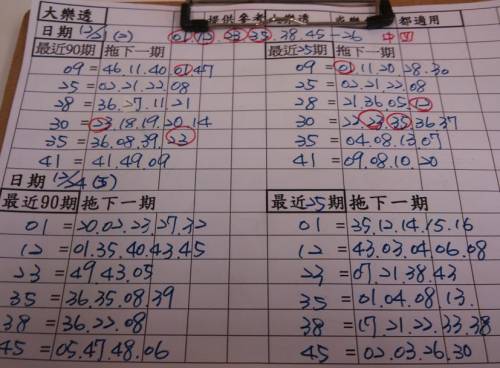 大樂透 提供參考 樂透 都適用
日期 12/21 (2) 01.12.23.35.38.45-26 中
最近90期 拖下一期 最近25期 拖下一期
09 = 46.11.40.01.47 09 = 01.11.20.28.30
25 = 02.21.22.08 25 = 02.21.22.08
28 = 36.27.11.21 28 = 21.36.05.12
30 = 23.18.19.20.14 30 = 22.23.35.36.37
35 = 36.08.39.23 35 = 04.08.13.07
41 = 41.49.09 41 = 09.08.10.20
日期 12/24 (5)
最近90期 拖下一期 最近25期 拖下一期
01 = 20.02.23.27.32 01 = 35.12.14.15.16
12 = 01.35.40.43.45 12 = 43.03.04.06.08
23 = 49.43.05 23 = 07.21.38.43
35 = 36.35.08.39 35 = 01.04.08.13.
38 = 36.22.08 38 = 17.21.22.33.38
45 = 05.47.48.06 45 = 02.03.26.30